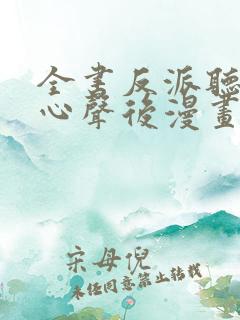 全書反派聽
心聲後漫畫
宋母倪
未经同意禁止转载